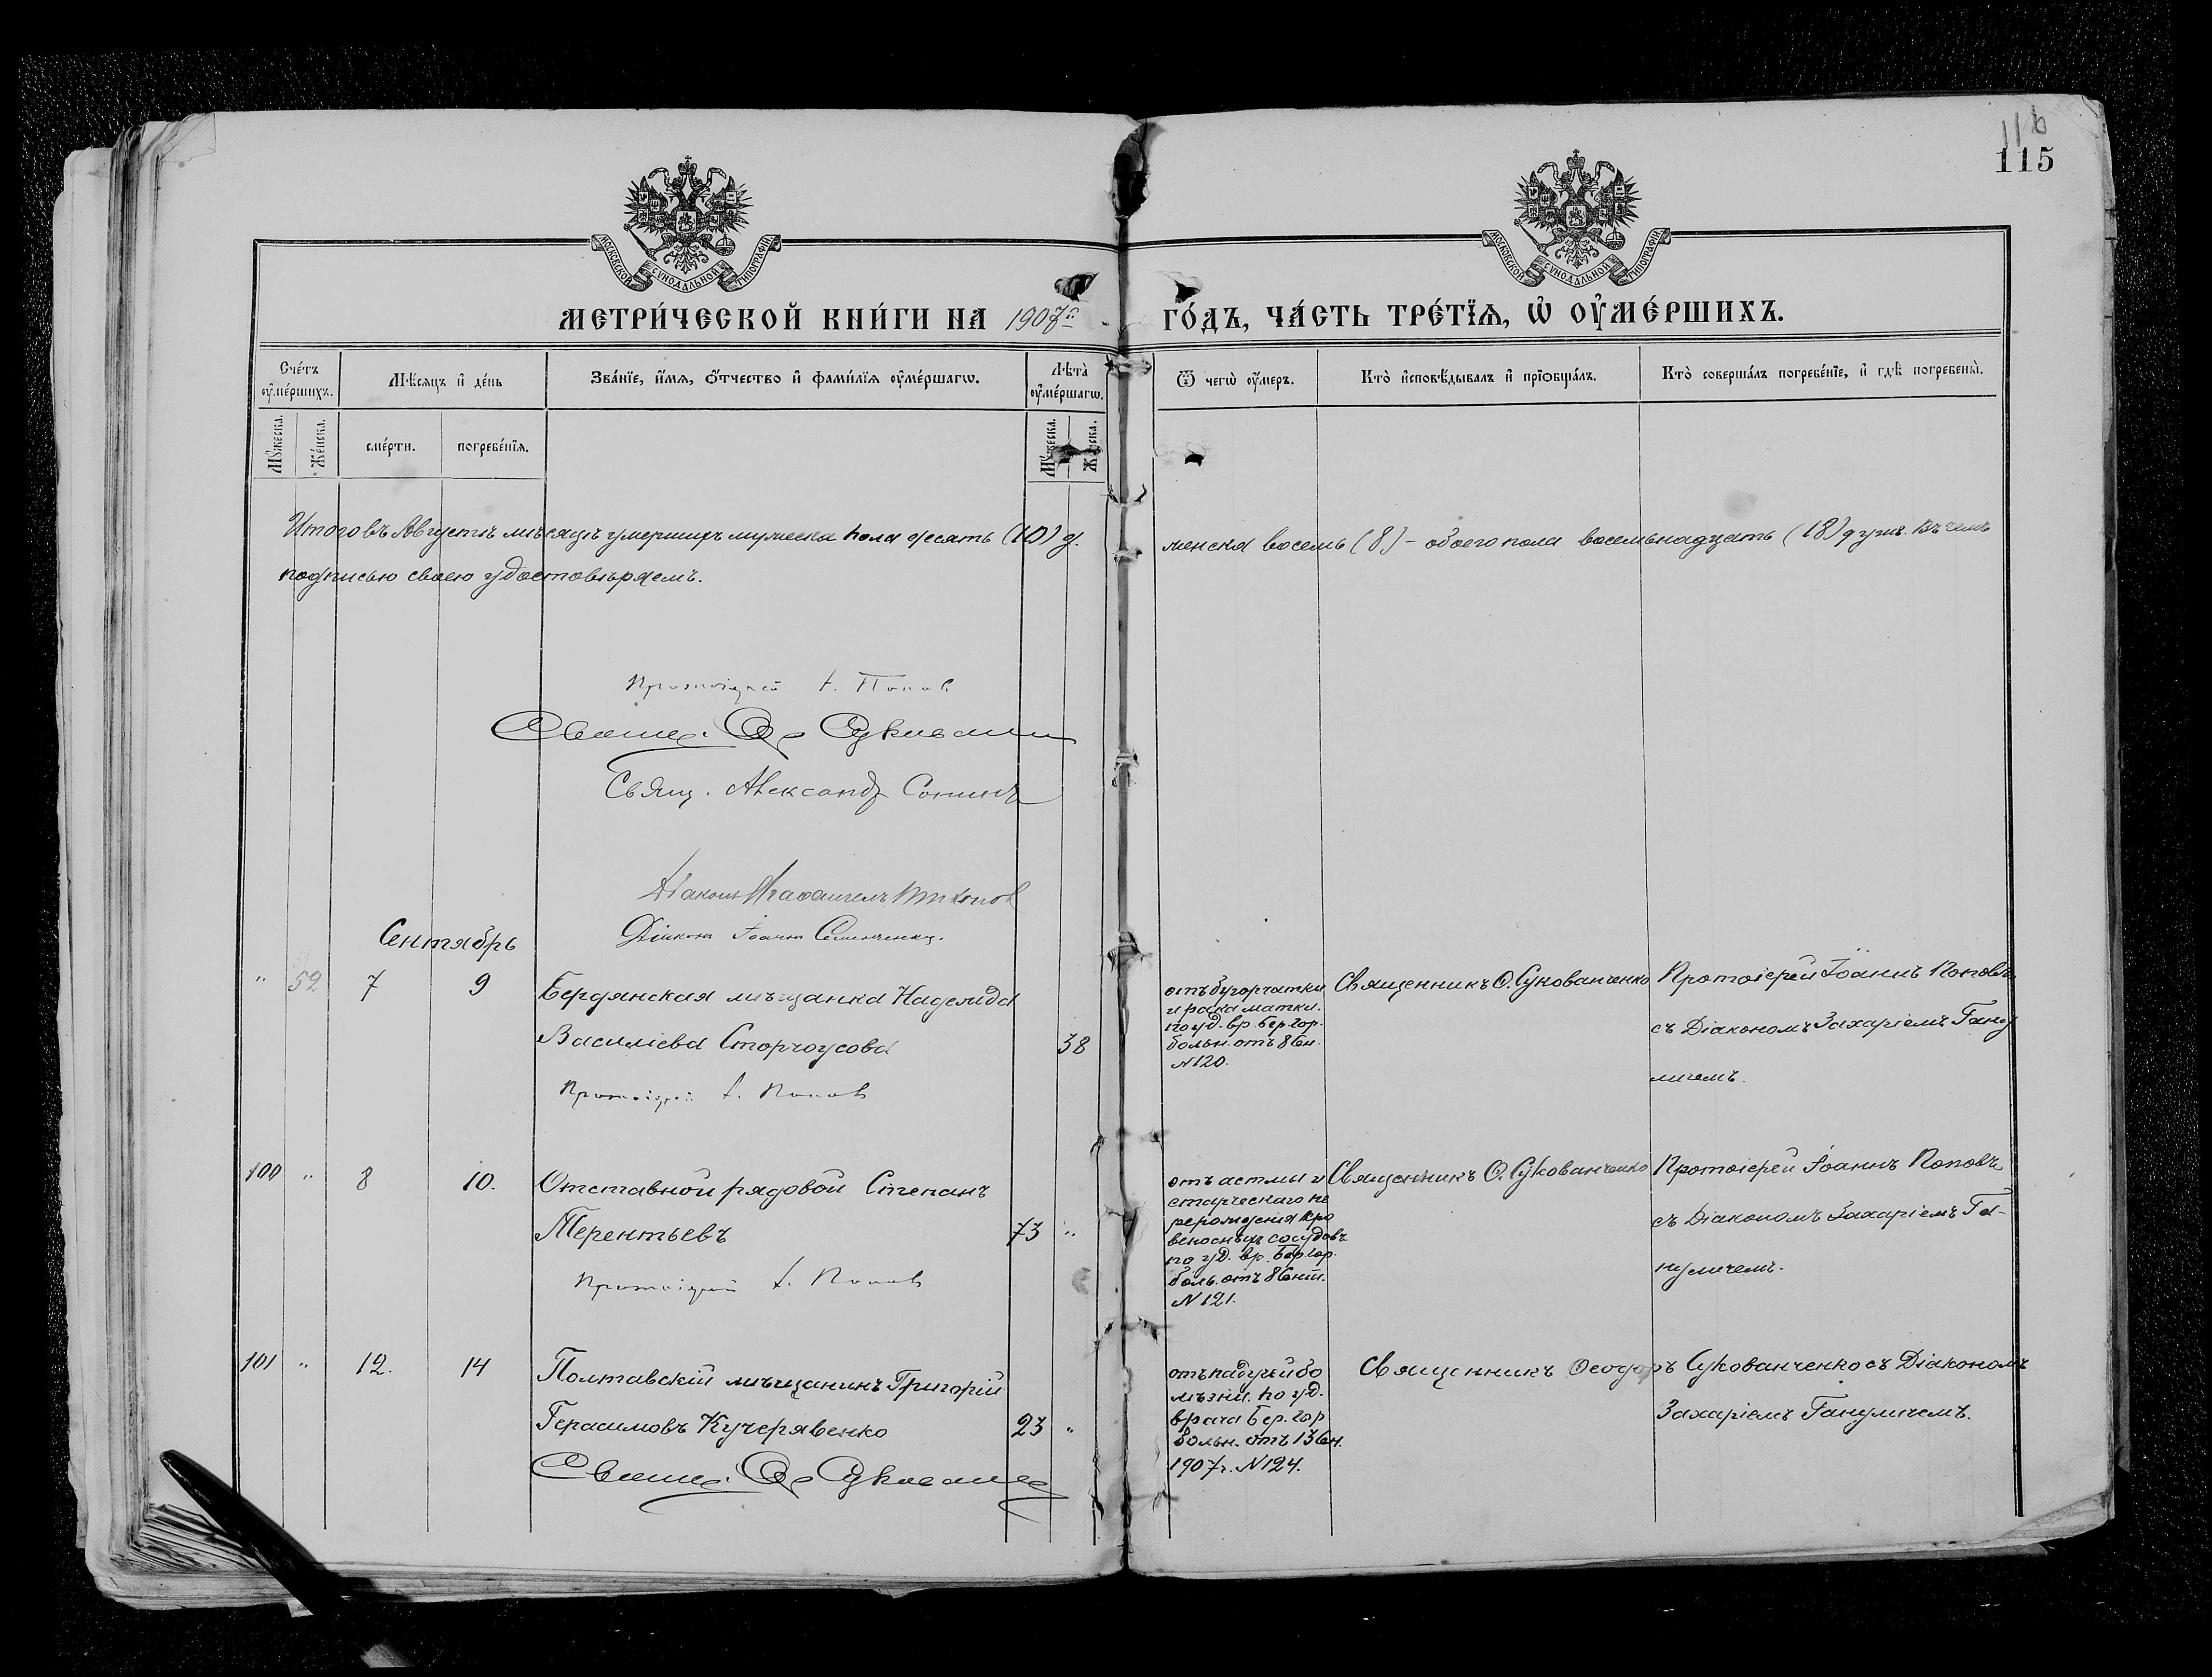 116
115
МОСКОВСКОЙ СѴНОДАЛЬНОЙ ТИПОГРАФІИ
МОСКОВСКОЙ СѴНОДАЛЬНОЙ ТИПОГРАФІИ
МЕТРИ́ЧЕСКОЙ КНИ́ГИ НА 1907й ГО́ДЪ, ЧА́СТЬ ТРЕ́ТЇѦ, Ѡ҆ ОУ҆МЕ́РШИХЪ.
Сче́тъ оу҆ме́ршихъ.
Мѣ́сѧцъ и҆ де́нь
Зва́нїе, и҆́мѧ, ѻ҆́тчество и҆ фами́лїѧ оу҆ме́ршагѡ.
Лѣ́та̀ оу҆ме́ршагѡ.
Ѿ чегѡ̀ оу҆́меръ.
Кто̀ и҆сповѣ́дывалъ и҆ прїѡбща́лъ.
Кто̀ соверша́лъ погребе́нїе, и҆ гдѣ̀ погребены̀.
Мꙋ́жеска.
Же́нска.
сме́рти.
погребе́нїѧ.
Мꙋ́жеска.
Же́нска.
Итого въ Августѣ мѣсяцѣ умершихъ мужеска пола десять (10) д. женска восемь (8) – обоего пола восемьнадцать (18) душъ. Въ чемъ
подписью своею удостовѣряемъ.
Протоіерей І. Попов
Священ. Ѳ. Сукован
Свящ. Александр Сонинъ
Діаконъ
Діаконъ Іоанн Семенченко.
Сентябрь
" 52 7 9 Бердянская мѣщанка Надежда
Василіева Сторчоусова 38
Протоіерей І. Попов
отъ бугорчатки
и рака матки.
по уд. вр. Бер. гор.
больн. отъ 8 Сен.
N 120.
Священникъ Ѳ. Сукованченко
Протоіерей Іоаннъ Поповъ
съ Діакономъ Захаріемъ Гану
личемъ.
100 " 8 10. Отставной рядовой Степанъ
Терентьевъ 73 "
Протоіерей І. Попов
отъ астмы и
старческаго пе
рерожденія кро
веносныхъ сосудовъ
по уд. вр. Бер. гор.
боль. отъ 8 Сент.
N 121.
Священникъ Ѳ. Сукованченко
Протоіерей Іоаннъ Поповъ
съ Діакономъ Захаріемъ Га-
нуличемъ.
101 " 12. 14 Полтавскій мѣщанинъ Григорій
Герасимовъ Кучерявенко 23 "
Священ. Ѳ. Сукован
отъ падучей бо
лѣзни. по уд.
врача Бер. гор
больн. отъ 13 Сен.
1907 г. N 124.
Священникъ Ѳеодоръ Сукованченко съ Діакономъ
Захаріемъ Гануличемъ.